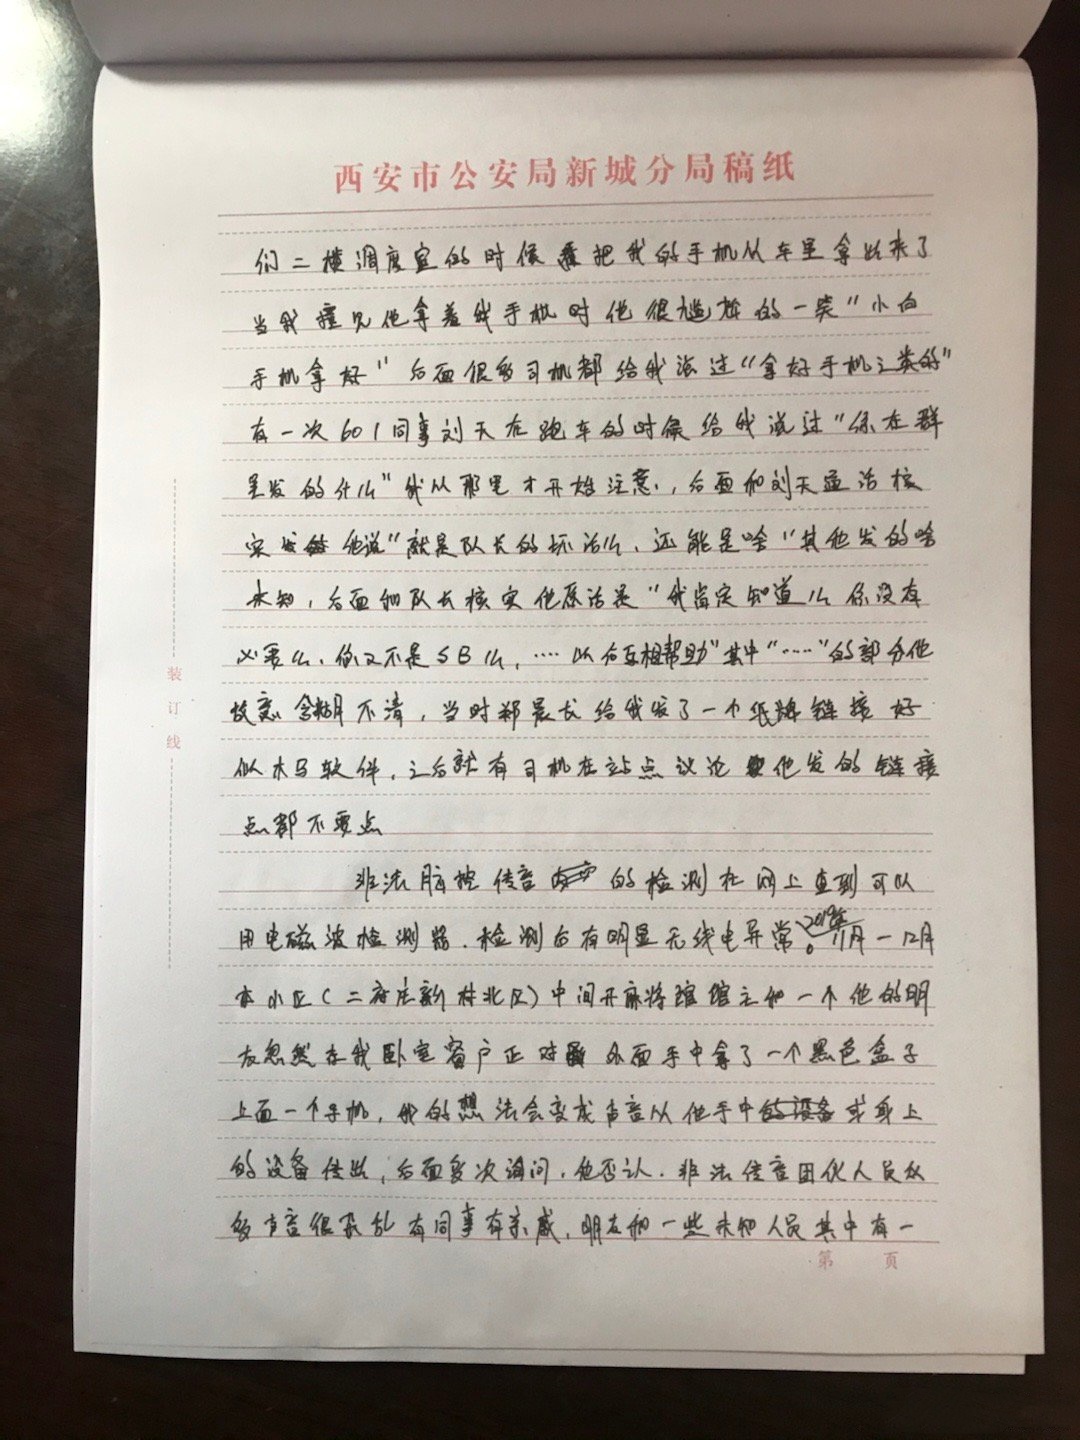 西安市公安局新城分局稿纸
们二楼调度室的时候 把我的手机从车里拿出来了
当我撞见他拿着我手机时他很尴尬的一笑“小白
手机拿好”后面很多司机都给我说过“拿好手机之类的”
有一次601同事刘天在跑车的时候给我说过“你在群
里发的什么”我从那里才开始注意,后面和刘天 核
实 他说“就是队长的坏话么,还能是啥”其他发的啥
未知,后面和队长核实他原话是“我肯定知道么你没有
必要么,你又不是SB么,……以后互相帮助”其中“……”的部分他
故意含糊不清,当时郑晨龙给我发了一个纸牌链接好
似木马软件,之后就有司机在站点议论 他发的链接
点都不要点
非法脑控传音 的检测在网上查到可以
用电磁波检测器.检测后有明显无线电异常。2019年11月-12月
本小区(二府庄新村北区)中间开麻将馆馆主和一个他的朋
友忽然在我卧室窗户正对 外面手中拿了一个黑色盒子
上面一个手机,我的想法会变成声音从他手中的设备或身上
的设备传出,后面多次询问,他否认.非法传音团伙人员众
多声音很杂乱有同事有亲戚,朋友和一些未知人员其中有一
第 页
装
订
线